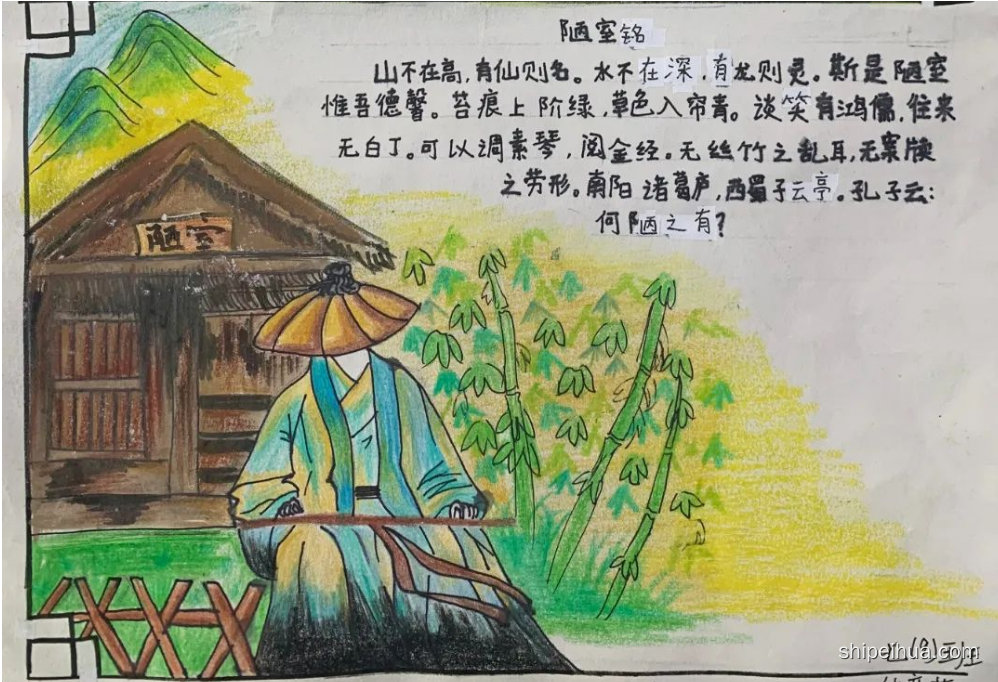 陋室铭
山不在高，有仙则名。水不在深，有龙则灵。斯是陋室
惟吾德馨。苔痕上阶绿，草色入帘青。谈笑有鸿儒，住来
无白丁。可以调素琴，阅金经。无丝竹之乱耳，无案牍
之劳形。南阳诸葛庐，西蜀子云亭。孔子云：
何陋之有？
陋室
shipeihua.com